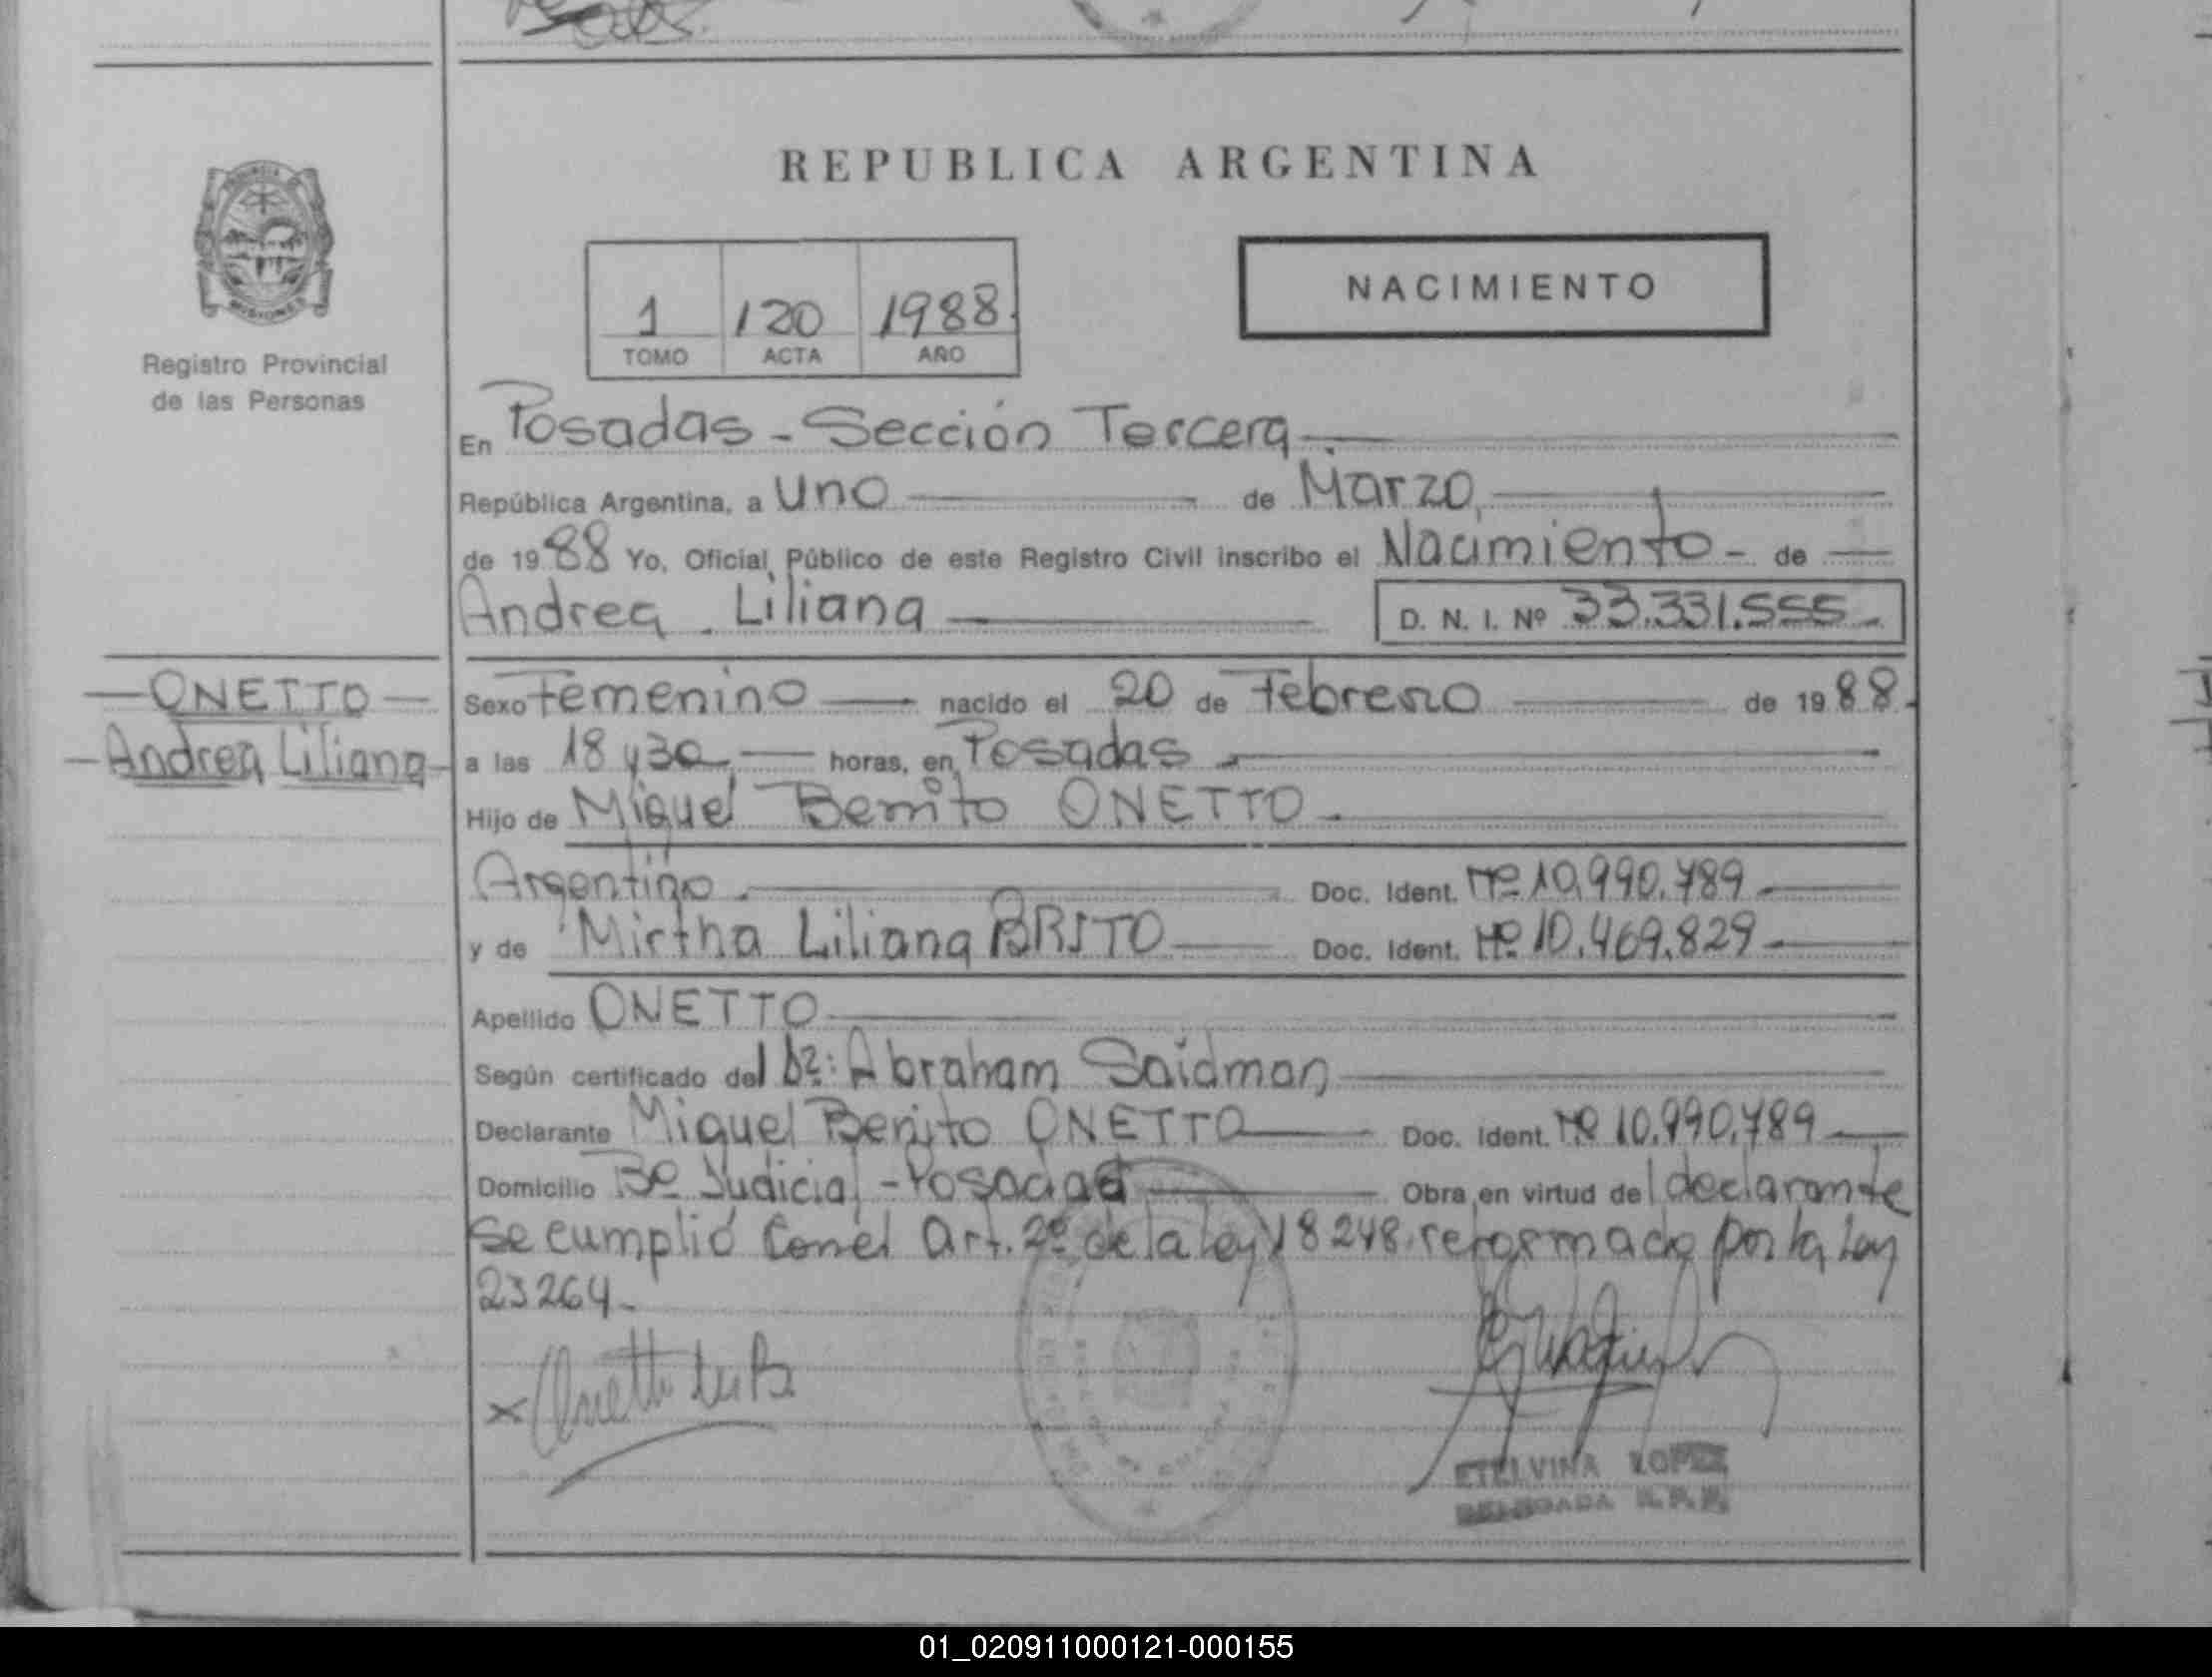 REPUBLICA ARGENTINA
1 120 1988
TOMO ACTA AÑO
NACIMIENTO
MISIONES
Registro Provincial
de las Personas
En Posadas - Sección Tercera
República Argentina, a Uno de Marzo,
de 1988 Yo, Oficial Público de este Registro Civil inscribo el Nacimiento - de
Andrea Liliana D. N. I. Nº 33.331.555
ONETTO
Andrea Liliana
Sexo Femenino nacido el 20 de Febrero de 1988.
a las 18 y 30 horas, en Posadas
Hijo de Miguel Benito ONETTO
Argentino Doc. Ident. Nº 10.990.789
y de Mirtha Liliana BRITO Doc. Ident. Nº 10.469.829
Apellido ONETTO
Según certificado del Dr: Abraham Saidman
Declarante Miguel Benito ONETTO Doc. Ident. Nº 10.990.789
Domicilio Bº Judicial - Posadas Obra en virtud del declarante
Se cumplió con el Art. 2º de la ley 18248 reformado por la Ley
23264
ETELVINA LOPEZ
DELEGADA R.P.P.
01_020911000121-000155